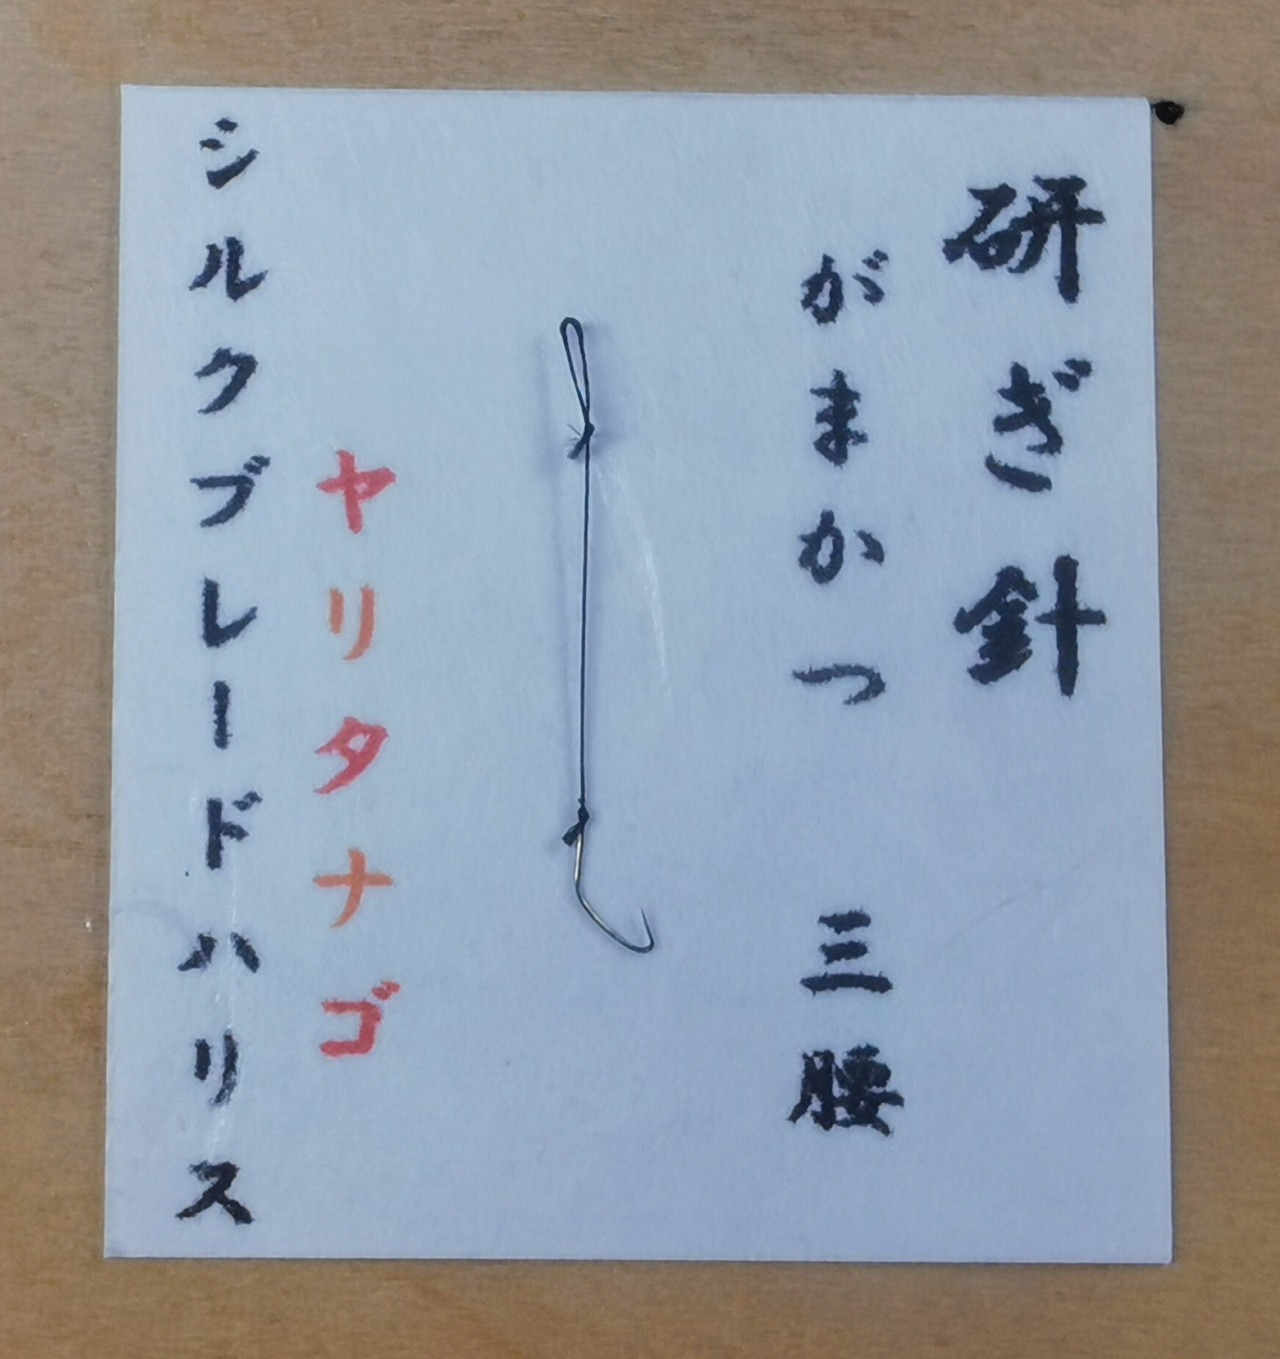 研ぎ針
がまかつ 三腰
ヤリタナゴ
シルクブレードハリス